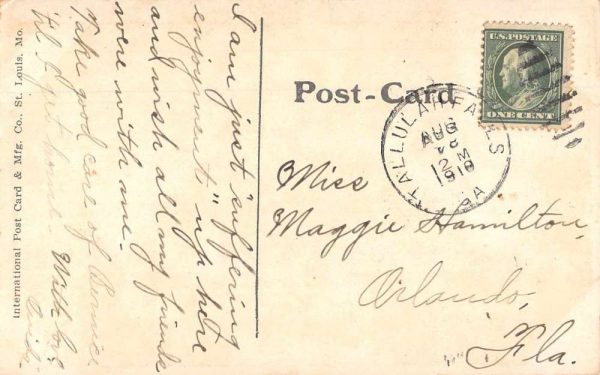 I am just "suffering
enjoyment" up here
and wish all my friends
were with me.
Take good care of Bonnie
til I get home. With love
International Post Card & Mfg. Co., St. Louis, Mo.
Post-Card
U.S. POSTAGE
ONE CENT
TALLULAH FALLS
AUG
12 M
1910
GA
Miss
Maggie Hamilton,
Orlando,
Fla.